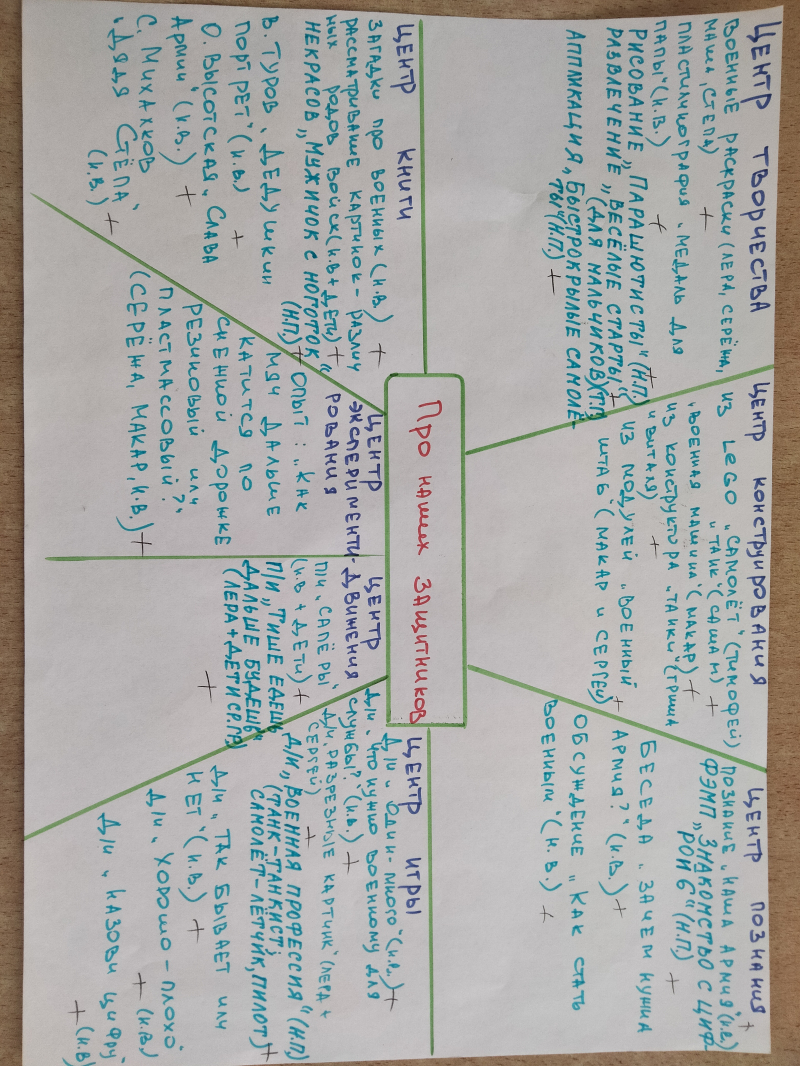 Про наших защитников
Центр книги
Загадки про военных (И.В) +
рассматривание картинок - различ
ных родов войск (И.В + дети) +
Некрасов „Мужичок с ноготок“
(Н.П.) +
В. Туров „Дедушкин
портрет“ (И.В) +
О. Высотская „Слава
Армии“ (И.В.) +
С. Михалков
„Дядя Стёпа“
(И.В.) +
Центр творчества
Военные раскраски (Лера, Серёжа,
Маша, Стёпа) +
пластилинография „Медаль для
папы“ (И.В.) +
Рисование „Парашютисты“ (Н.П) +
Развлечение „Весёлые старты“ +
(для мальчиков) (Т.П)
Аппликация „Быстрокрылые самолё-
ты“ (Н.П.) +
Центр
эксперименти-
рования
Опыт: „Как
мяч дальше
катится по
снежной дорожке
резиновый или
пластмассовый?“
(Серёжа, Макар, И.В.) +
Центр конструирования
из LEGO „Самолёт“ (Тимофей)
„Танк“ (Саша М) +
„Военная машина“ (Макар) +
из конструктора „Танки“ (Гриша
и Витах) +
из модулей „Военный
штаб“ (Макар и Сергей) +
Центр
движения
п/и „Сапёры“
(И.В + дети) +
п/и „Тише едешь
дальше будешь“
(Лера + дети ср.гр) +
Центр игры
Д/и „Один-много“ (И.В.) +
Д/и „Что нужно военному для
службы?“ (И.В.) +
Д/и „Разрезные картинк“ (Лера +
Сергей) +
Д/и „Военная профессия“ (Н.П)
(танк-танкист,
самолёт-лётчик, пилот) +
Д/и „Так бывает или
нет“ (И.В.) +
Д/и „Хорошо-плохо“
+ (И.В.)
Д/и „Назови цифру“
+ (И.В)
Центр познания
Познание „Наша армия“ (И.В.) +
ФЭМП „Знакомство с циф-
рой 6“ (Н.П.) +
Беседа „Зачем нужна
Армия?“ (И.В.) +
Обсуждение „Как стать
военным“ (И.В.) +